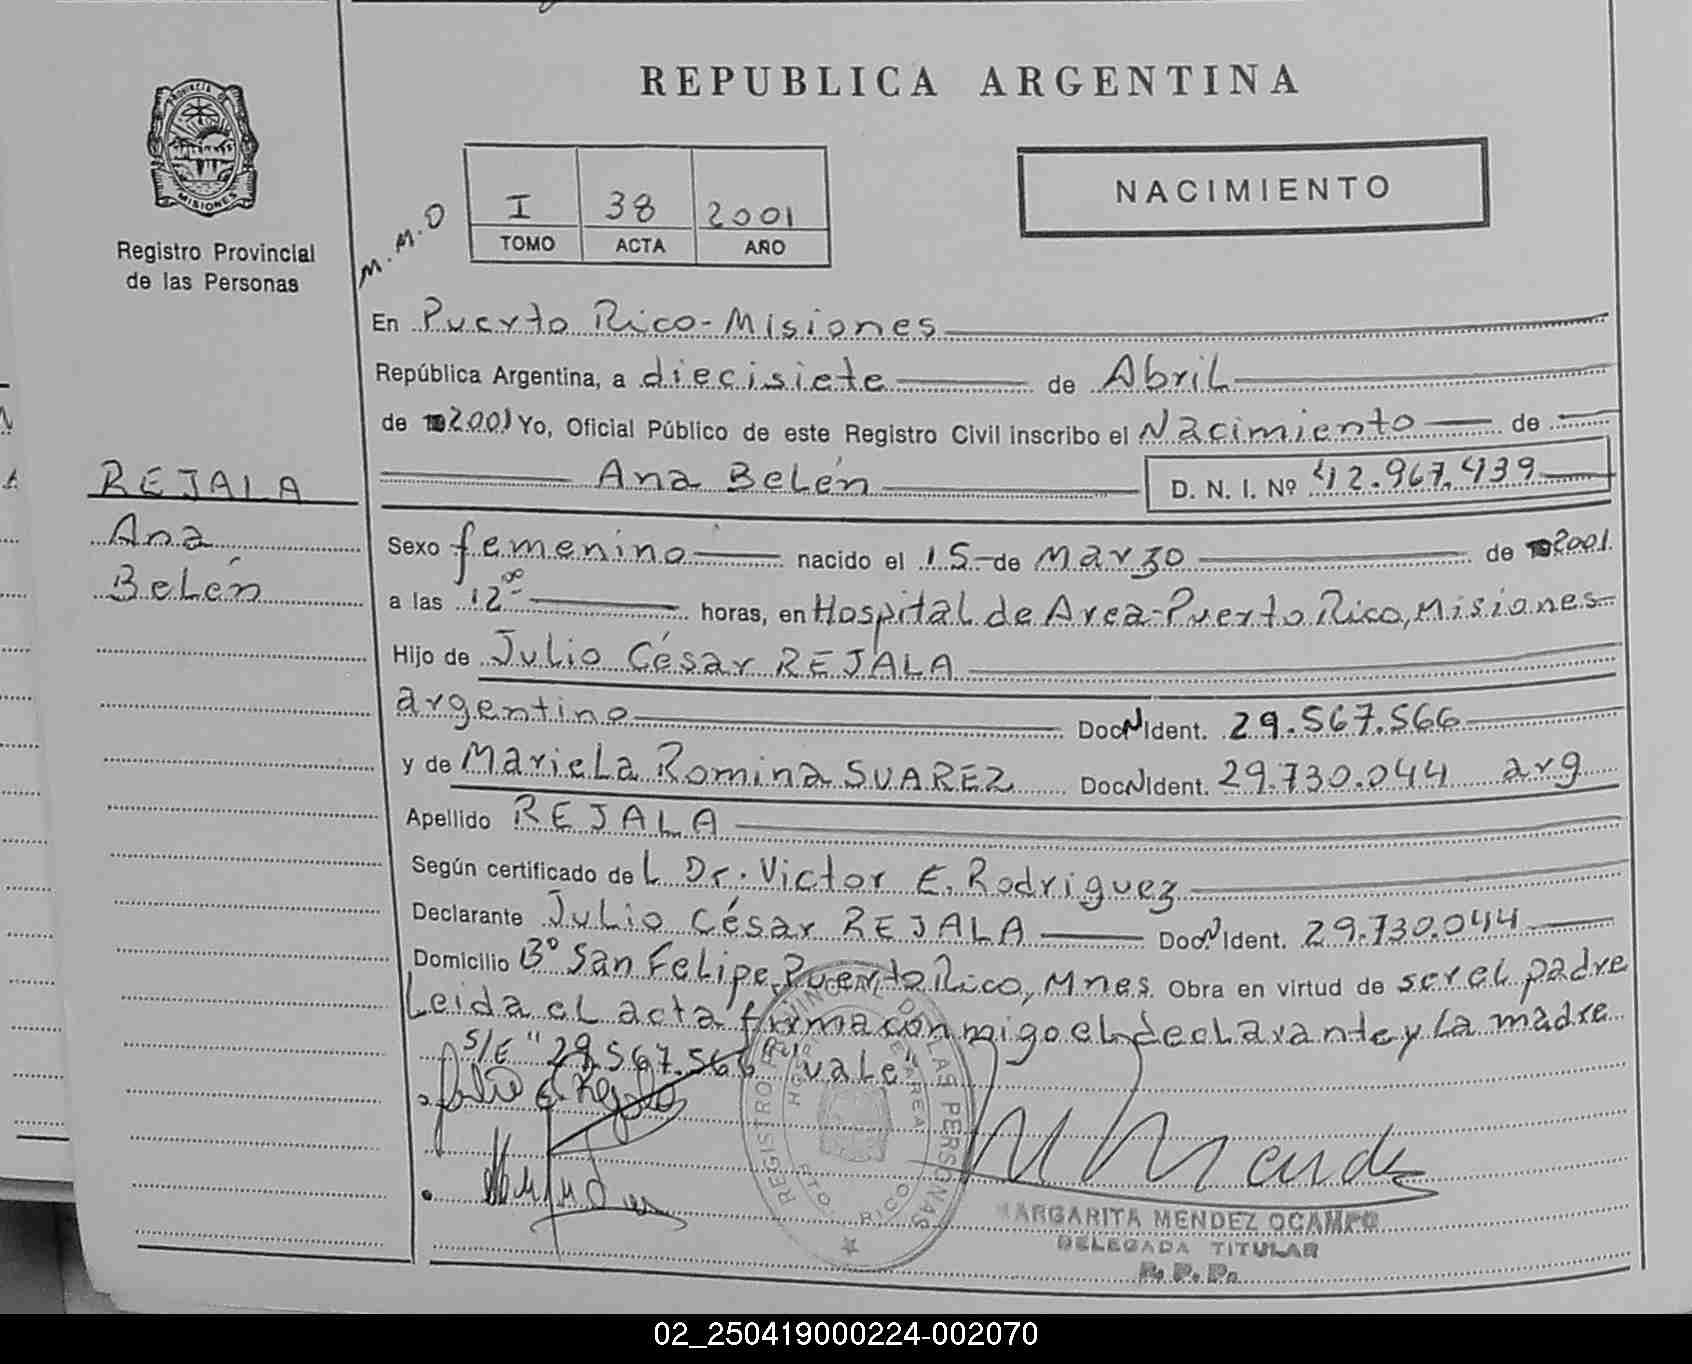 REPUBLICA ARGENTINA
PROVINCIA DE
MISIONES
Registro Provincial
de las Personas
M.M.O
I 38 2001
TOMO ACTA AÑO
NACIMIENTO
En Puerto Rico-Misiones
República Argentina, a diecisiete de Abril
de 2001 Yo, Oficial Público de este Registro Civil inscribo el Nacimiento de
Ana Belén D. N. I. Nº 42.967.439
REJALA
Ana
Belén
Sexo femenino nacido el 15 de Marzo de 2001.
a las 12 ºº horas, en Hospital de Area-Puerto Rico, Misiones
Hijo de Julio César REJALA
argentino Doc N Ident. 29.567.566
y de Mariela Romina SUAREZ Doc N Ident. 29.730.044 arg
Apellido REJALA
Según certificado de L Dr. Victor E. Rodriguez
Declarante Julio César REJALA Doc. N Ident. 29.730.044
Domicilio Bº San Felipe, Puerto Rico, Mnes. Obra en virtud de ser el padre
Leida el acta firma conmigo el declarante y la madre
S/E "29.567.566" vale
REGISTRO PROVINCIAL DE LAS PERSONAS
PTO. RICO
MARGARITA MENDEZ OCAMPO
DELEGADA TITULAR
R. P. P.
02_250419000224-002070